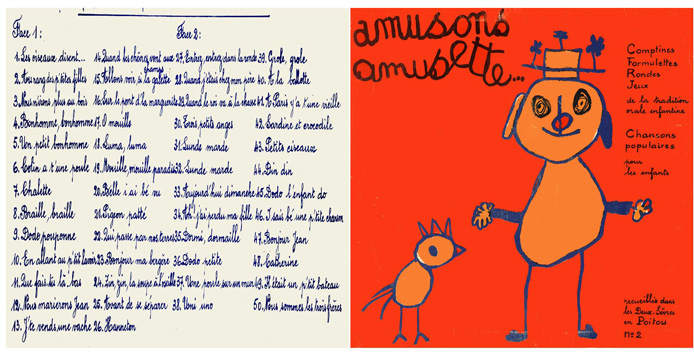 Face 1:
Face 2:
1. Les oiseaux disent...
2. Au rang des p'tites filles
3. Nous n'irons plus au bois
4. Bonhomme, bonhomme
5. Un petit bonhomme
6. Colin a t'une poule
7. Chalette
8. Braille, braille
9. Dodo pouponne
10. En allant au p'tit lavoir
11. Que fais tu là bas
12. Nous marierons Jean
13. J'te vends une vache
14. Quand les chiens vont aux champs
15. Allons voir si la galette
16. Sur le pont d'la marguerite
17. O mouille
18. Luma, luma
19. Mouille mouille paradis
20. Belle j'ai bé vu
21. Pigeon patté
22. Qui passe par nos terres
23. Bonjour ma bergère
24. Zin, zin, la soupe à l'oseille
25. Avant de se séparer
26. Hanneton
27. Entrez, entrez dans la ronde
28. Quand j'étais chez mon père
29. Quand le roi va à la chasse
30. Trois petits anges
31. Lunde marde
32. Lunde marde
33. Aujourd'hui dimanche
34. Ah! j'ai perdu ma fille
35. Dormé, dormaille
36. Dodo petite
37. Une poule sur un mur
38. Uni uno
39. Grole, grole
40. A la ballotte
41. A Paris y'a t'une vieille
42. Sardine et crocodile
43. Petits ciseaux
44. Din din
45. Dodo l'enfant do
46. J'sais bé une p'tite chanson
47. Bonjour Jean
48. Catherine
49. Il était un p'tit bateau
50. Nous sommes les trois frères
amusons
amusette...
Comptines
Formulettes
Rondes
Jeux
de la tradition
orale enfantine
Chansons
populaires
pour
les enfants
recueillies dans
les Deux Sèvres
en Poitou
n°2